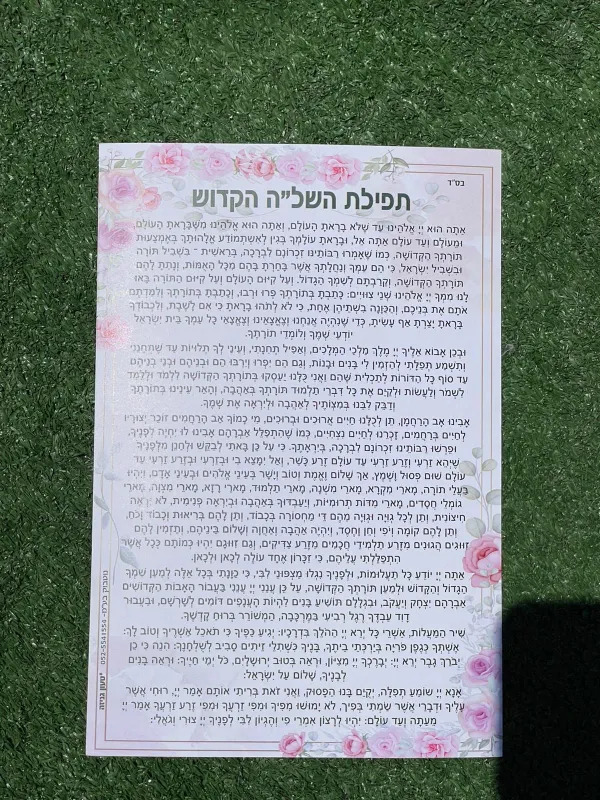 בס"ד
תפילת השל"ה הקדוש
אַתָּה הוּא יְיָ אֱלֹהֵינוּ עַד שֶׁלֹּא בָרָאתָ הָעוֹלָם, וְאַתָּה הוּא אֱלֹהֵינוּ מִשֶּׁבָּרָאתָ הָעוֹלָם,
וּמֵעוֹלָם וְעַד עוֹלָם אַתָּה אֵל, וּבָרָאתָ עוֹלָמְךָ בְּגִין לְאִשְׁתְּמוֹדַע אֱלָהוּתָךְ בְּאֶמְצָעוּת
תּוֹרָתְךָ הַקְּדוֹשָׁה, כְּמוֹ שֶׁאָמְרוּ רַבּוֹתֵינוּ זִכְרוֹנָם לִבְרָכָה, בְּרֵאשִׁית - בִּשְׁבִיל תּוֹרָה
וּבִשְׁבִיל יִשְׂרָאֵל, כִּי הֵם עַמְּךָ וְנַחֲלָתְךָ אֲשֶׁר בָּחַרְתָּ בָּהֶם מִכָּל הָאֻמּוֹת, וְנָתַתָּ לָהֶם
תּוֹרָתְךָ הַקְּדוֹשָׁה, וְקֵרַבְתָּם לְשִׁמְךָ הַגָּדוֹל. וְעַל קִיּוּם הָעוֹלָם וְעַל קִיּוּם הַתּוֹרָה בָּאוּ
לָנוּ מִמְּךָ יְיָ אֱלֹהֵינוּ שְׁנֵי צִוּוּיִים: כָּתַבְתָּ בְּתוֹרָתְךָ פְּרוּ וּרְבוּ, וְכָתַבְתָּ בְּתוֹרָתְךָ וְלִמַּדְתֶּם
אֹתָם אֶת בְּנֵיכֶם, וְהַכַּוָּנָה בִּשְׁתֵּיהֶן אַחַת, כִּי לֹא לְתֹהוּ בָרָאתָ כִּי אִם לָשֶׁבֶת, וְלִכְבוֹדְךָ
בָּרָאתָ יָצַרְתָּ אַף עָשִׂיתָ, כְּדֵי שֶׁנִּהְיֶה אֲנַחְנוּ וְצֶאֱצָאֵינוּ וְצֶאֱצָאֵי כָּל עַמְּךָ בֵּית יִשְׂרָאֵל
יוֹדְעֵי שְׁמֶךָ וְלוֹמְדֵי תוֹרָתֶךָ.
וּבְכֵן אָבוֹא אֵלֶיךָ יְיָ מֶלֶךְ מַלְכֵי הַמְּלָכִים, וְאַפִּיל תְּחִנָּתִי, וְעֵינַי לְךָ תְלוּיוֹת עַד שֶׁתְּחָנֵּנִי
וְתִשְׁמַע תְּפִלָּתִי לְהַזְמִין לִי בָּנִים וּבָנוֹת, וְגַם הֵם יִפְרוּ וְיִרְבּוּ הֵם וּבְנֵיהֶם וּבְנֵי בְנֵיהֶם
עַד סוֹף כָּל הַדּוֹרוֹת לְתַכְלִית שֶׁהֵם וַאֲנִי כֻּלָּנוּ יַעַסְקוּ בְּתוֹרָתְךָ הַקְּדוֹשָׁה לִלְמֹד וּלְלַמֵּד
לִשְׁמֹר וְלַעֲשׂוֹת וּלְקַיֵּם אֶת כָּל דִּבְרֵי תַלְמוּד תּוֹרָתְךָ בְּאַהֲבָה, וְהָאֵר עֵינֵינוּ בְּתוֹרָתֶךָ
וְדַבֵּק לִבֵּנוּ בְּמִצְוֹתֶיךָ לְאַהֲבָה וּלְיִרְאָה אֶת שְׁמֶךָ.
אָבִינוּ אָב הָרַחֲמָן, תֵּן לְכֻלָּנוּ חַיִּים אֲרוּכִים וּבְרוּכִים, מִי כָמוֹךָ אַב הָרַחֲמִים זוֹכֵר יְצוּרָיו
לְחַיִּים בְּרַחֲמִים, זָכְרֵנוּ לְחַיִּים נִצְחִיִּים, כְּמוֹ שֶׁהִתְפַּלֵּל אַבְרָהָם אָבִינוּ לוּ יִחְיֶה לְפָנֶיךָ,
וּפֵרְשׁוּ רַבּוֹתֵינוּ זִכְרוֹנָם לִבְרָכָה, בְּיִרְאָתֶךָ. כִּי עַל כֵּן בָּאתִי לְבַקֵּשׁ וּלְחַנֵּן מִלְּפָנֶיךָ
שֶׁיְּהֵא זַרְעִי וְזֶרַע זַרְעִי עַד עוֹלָם זֶרַע כָּשֵׁר, וְאַל יִמָּצֵא בִּי וּבְזַרְעִי וּבְזֶרַע זַרְעִי עַד
עוֹלָם שׁוּם פְּסוּל וָשֶׁמֶץ, אַךְ שָׁלוֹם וֶאֱמֶת וְטוֹב וְיָשָׁר בְּעֵינֵי אֱלֹהִים וּבְעֵינֵי אָדָם, וְיִהְיוּ
בַּעֲלֵי תוֹרָה, מָארֵי מִקְרָא, מָארֵי מִשְׁנָה, מָארֵי תַלְמוּד, מָארֵי רָזָא, מָארֵי מִצְוָה, מָארֵי
גוֹמְלֵי חֲסָדִים, מָארֵי מִדּוֹת תְּרוּמִיּוֹת, וְיַעַבְדוּךָ בְּאַהֲבָה וּבְיִרְאָה פְּנִימִית, לֹא יִרְאָה
חִיצוֹנִית, וְתֵן לְכָל גְּוִיָּה וּגְוִיָּה מֵהֶם דֵּי מַחְסוֹרָהּ בְּכָבוֹד, וְתֵן לָהֶם בְּרִיאוּת וְכָבוֹד וָכֹחַ,
וְתֵן לָהֶם קוֹמָה וְיֹפִי וְחֵן וָחֶסֶד, וְיִהְיֶה אַהֲבָה וְאַחֲוָה וְשָׁלוֹם בֵּינֵיהֶם, וְתַזְמִין לָהֶם
זִוּוּגִים הֲגוּנִים מִזֶּרַע תַּלְמִידֵי חֲכָמִים מִזֶּרַע צַדִּיקִים, וְגַם זִוּוּגָם יִהְיוּ כְּמוֹתָם כְּכָל אֲשֶׁר
הִתְפַּלַּלְתִּי עֲלֵיהֶם, כִּי זִכָּרוֹן אֶחָד עוֹלֶה לְכָאן וּלְכָאן.
אַתָּה יְיָ יוֹדֵעַ כָּל תַּעֲלוּמוֹת, וּלְפָנֶיךָ נִגְלוּ מַצְפּוּנֵי לִבִּי, כִּי כַוָּנָתִי בְּכָל אֵלֶּה לְמַעַן שִׁמְךָ
הַגָּדוֹל וְהַקָּדוֹשׁ וּלְמַעַן תּוֹרָתְךָ הַקְּדוֹשָׁה, עַל כֵּן עֲנֵנִי יְיָ עֲנֵנִי בַּעֲבוּר הָאָבוֹת הַקְּדוֹשִׁים
אַבְרָהָם יִצְחָק וְיַעֲקֹב, וּבִגְלָלָם תּוֹשִׁיעַ בָּנִים לִהְיוֹת הָעֲנָפִים דּוֹמִים לְשָׁרְשָׁם, וּבַעֲבוּר
דָּוִד עַבְדֶּךָ רֶגֶל רְבִיעִי בַּמֶּרְכָּבָה, הַמְשׁוֹרֵר בְּרוּחַ קָדְשֶׁךָ.
שִׁיר הַמַּעֲלוֹת, אַשְׁרֵי כָּל יְרֵא יְיָ הַהֹלֵךְ בִּדְרָכָיו: יְגִיעַ כַּפֶּיךָ כִּי תֹאכֵל אַשְׁרֶיךָ וְטוֹב לָךְ:
אֶשְׁתְּךָ כְּגֶפֶן פֹּרִיָּה בְּיַרְכְּתֵי בֵיתֶךָ, בָּנֶיךָ כִּשְׁתִלֵי זֵיתִים סָבִיב לְשֻׁלְחָנֶךָ: הִנֵּה כִי כֵן
יְבֹרַךְ גָּבֶר יְרֵא יְיָ: יְבָרֶכְךָ יְיָ מִצִּיּוֹן, וּרְאֵה בְּטוּב יְרוּשָׁלָיִם, כֹּל יְמֵי חַיֶּיךָ: וּרְאֵה בָנִים
לְבָנֶיךָ, שָׁלוֹם עַל יִשְׂרָאֵל:
אָנָּא יְיָ שׁוֹמֵעַ תְּפִלָּה, יְקֻיַּם בָּנוּ הַפָּסוּק, וַאֲנִי זֹאת בְּרִיתִי אוֹתָם אָמַר יְיָ, רוּחִי אֲשֶׁר
עָלֶיךָ וּדְבָרַי אֲשֶׁר שַׂמְתִּי בְּפִיךָ, לֹא יָמוּשׁוּ מִפִּיךָ וּמִפִּי זַרְעֲךָ וּמִפִּי זֶרַע זַרְעֲךָ אָמַר יְיָ
מֵעַתָּה וְעַד עוֹלָם: יִהְיוּ לְרָצוֹן אִמְרֵי פִי וְהֶגְיוֹן לִבִּי לְפָנֶיךָ יְיָ צוּרִי וְגֹאֲלִי:
*טעון גניזה
052-5541554